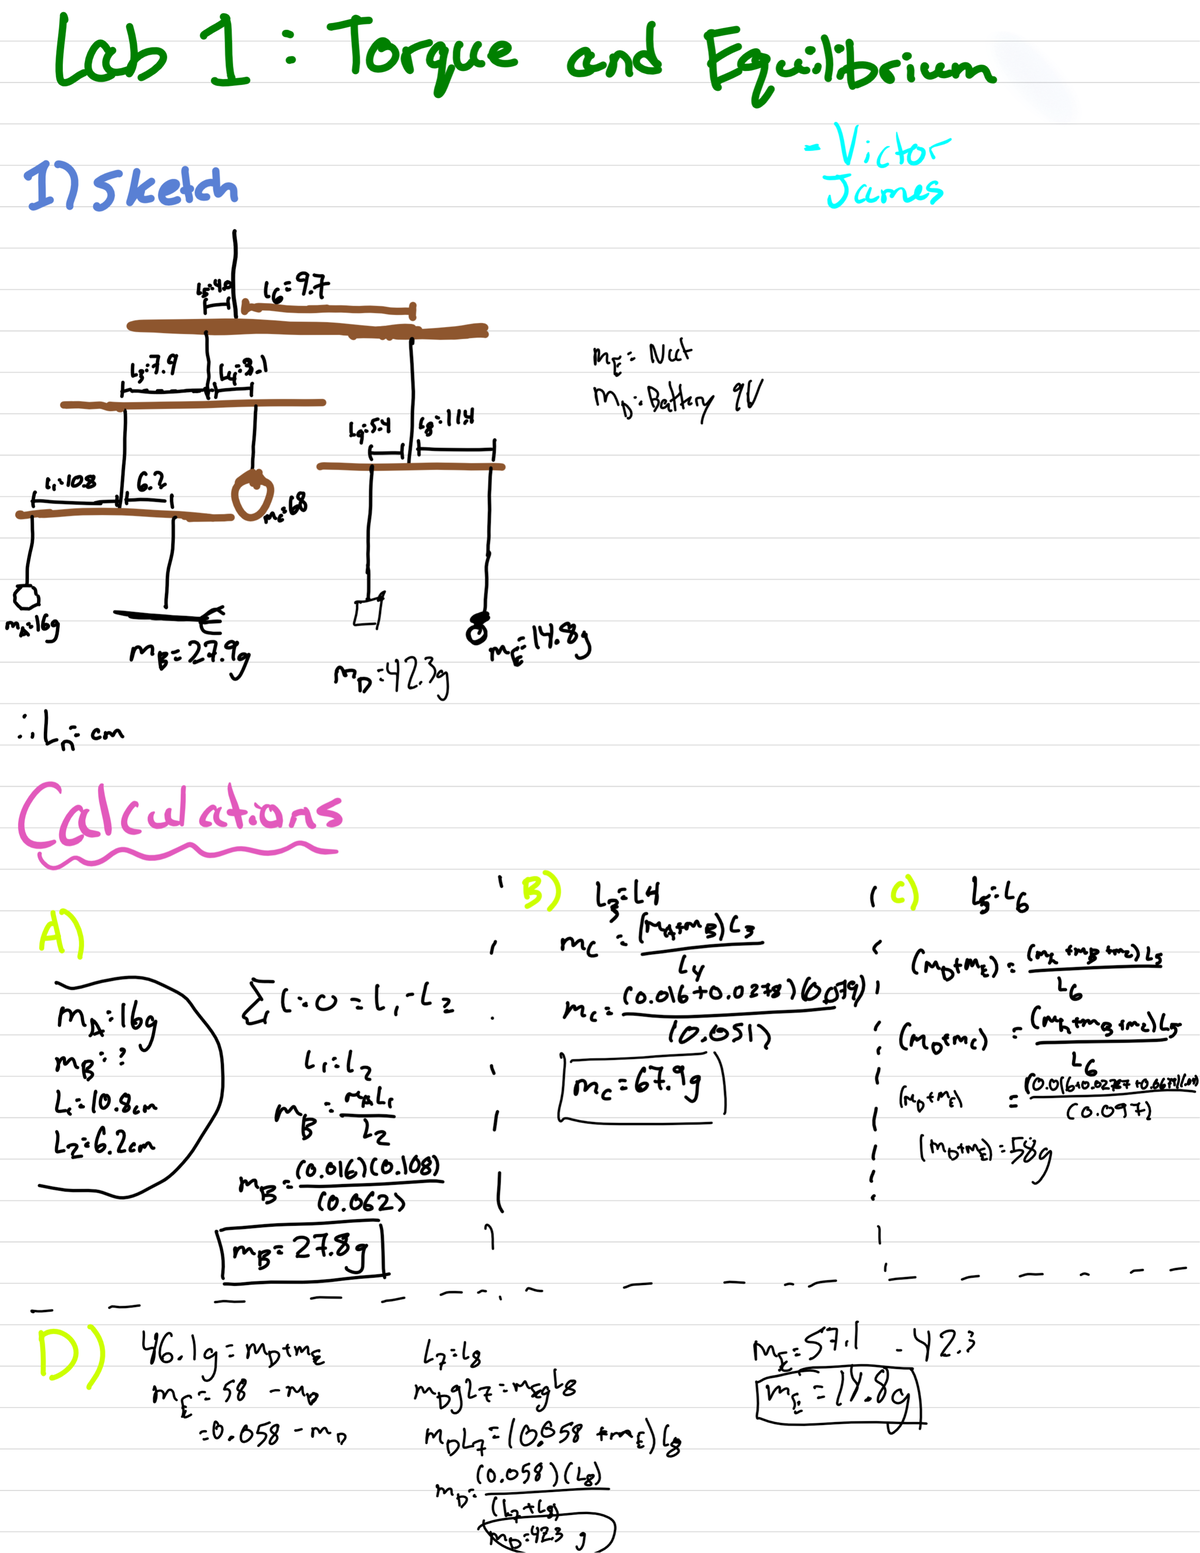 Lab 1: Torque and Equilibrium
- Victor
James
1) Sketch
L5=4.0
L6=9.7
L3=7.9
L4=5.1
mE= Nut
mD= Battery 9V
L7=5.4
L8=11.4
L1=10.8
6.2
mC=68
mA=16g
mB=27.9g
mD=42.3g
mE=14.8g
∴ Ln= cm
Calculations
A)
mA=16g
mB=?
L1=10.8cm
L2=6.2cm
∑τ=0=L1-L2
L1=L2
mB=mAL1/L2
mB=(0.016)(0.108)/(0.062)
mB=27.8g
B)
L3=L4
mC=(mA+mB)L3/L4
mC=(0.016+0.0278)(0.079)/(0.051)
mC=67.9g
C)
L5=L6
(mD+mE)=(mA+mB+mC)L5/L6
(mD+mC)=(mA+mB+mC)L5/L6
(mD+mE)=
(0.097)
(mD+mE)=58g
D)
46.1g=mD+mE
mE=58-mD
=0.058-mD
L7=L8
mDgL7=mEgL8
mDL7=(0.058+mE)L8
mD=(0.058)(L8)/(L7+L8)
mD=42.3 g
mE=57.1-42.3
mE=14.8g